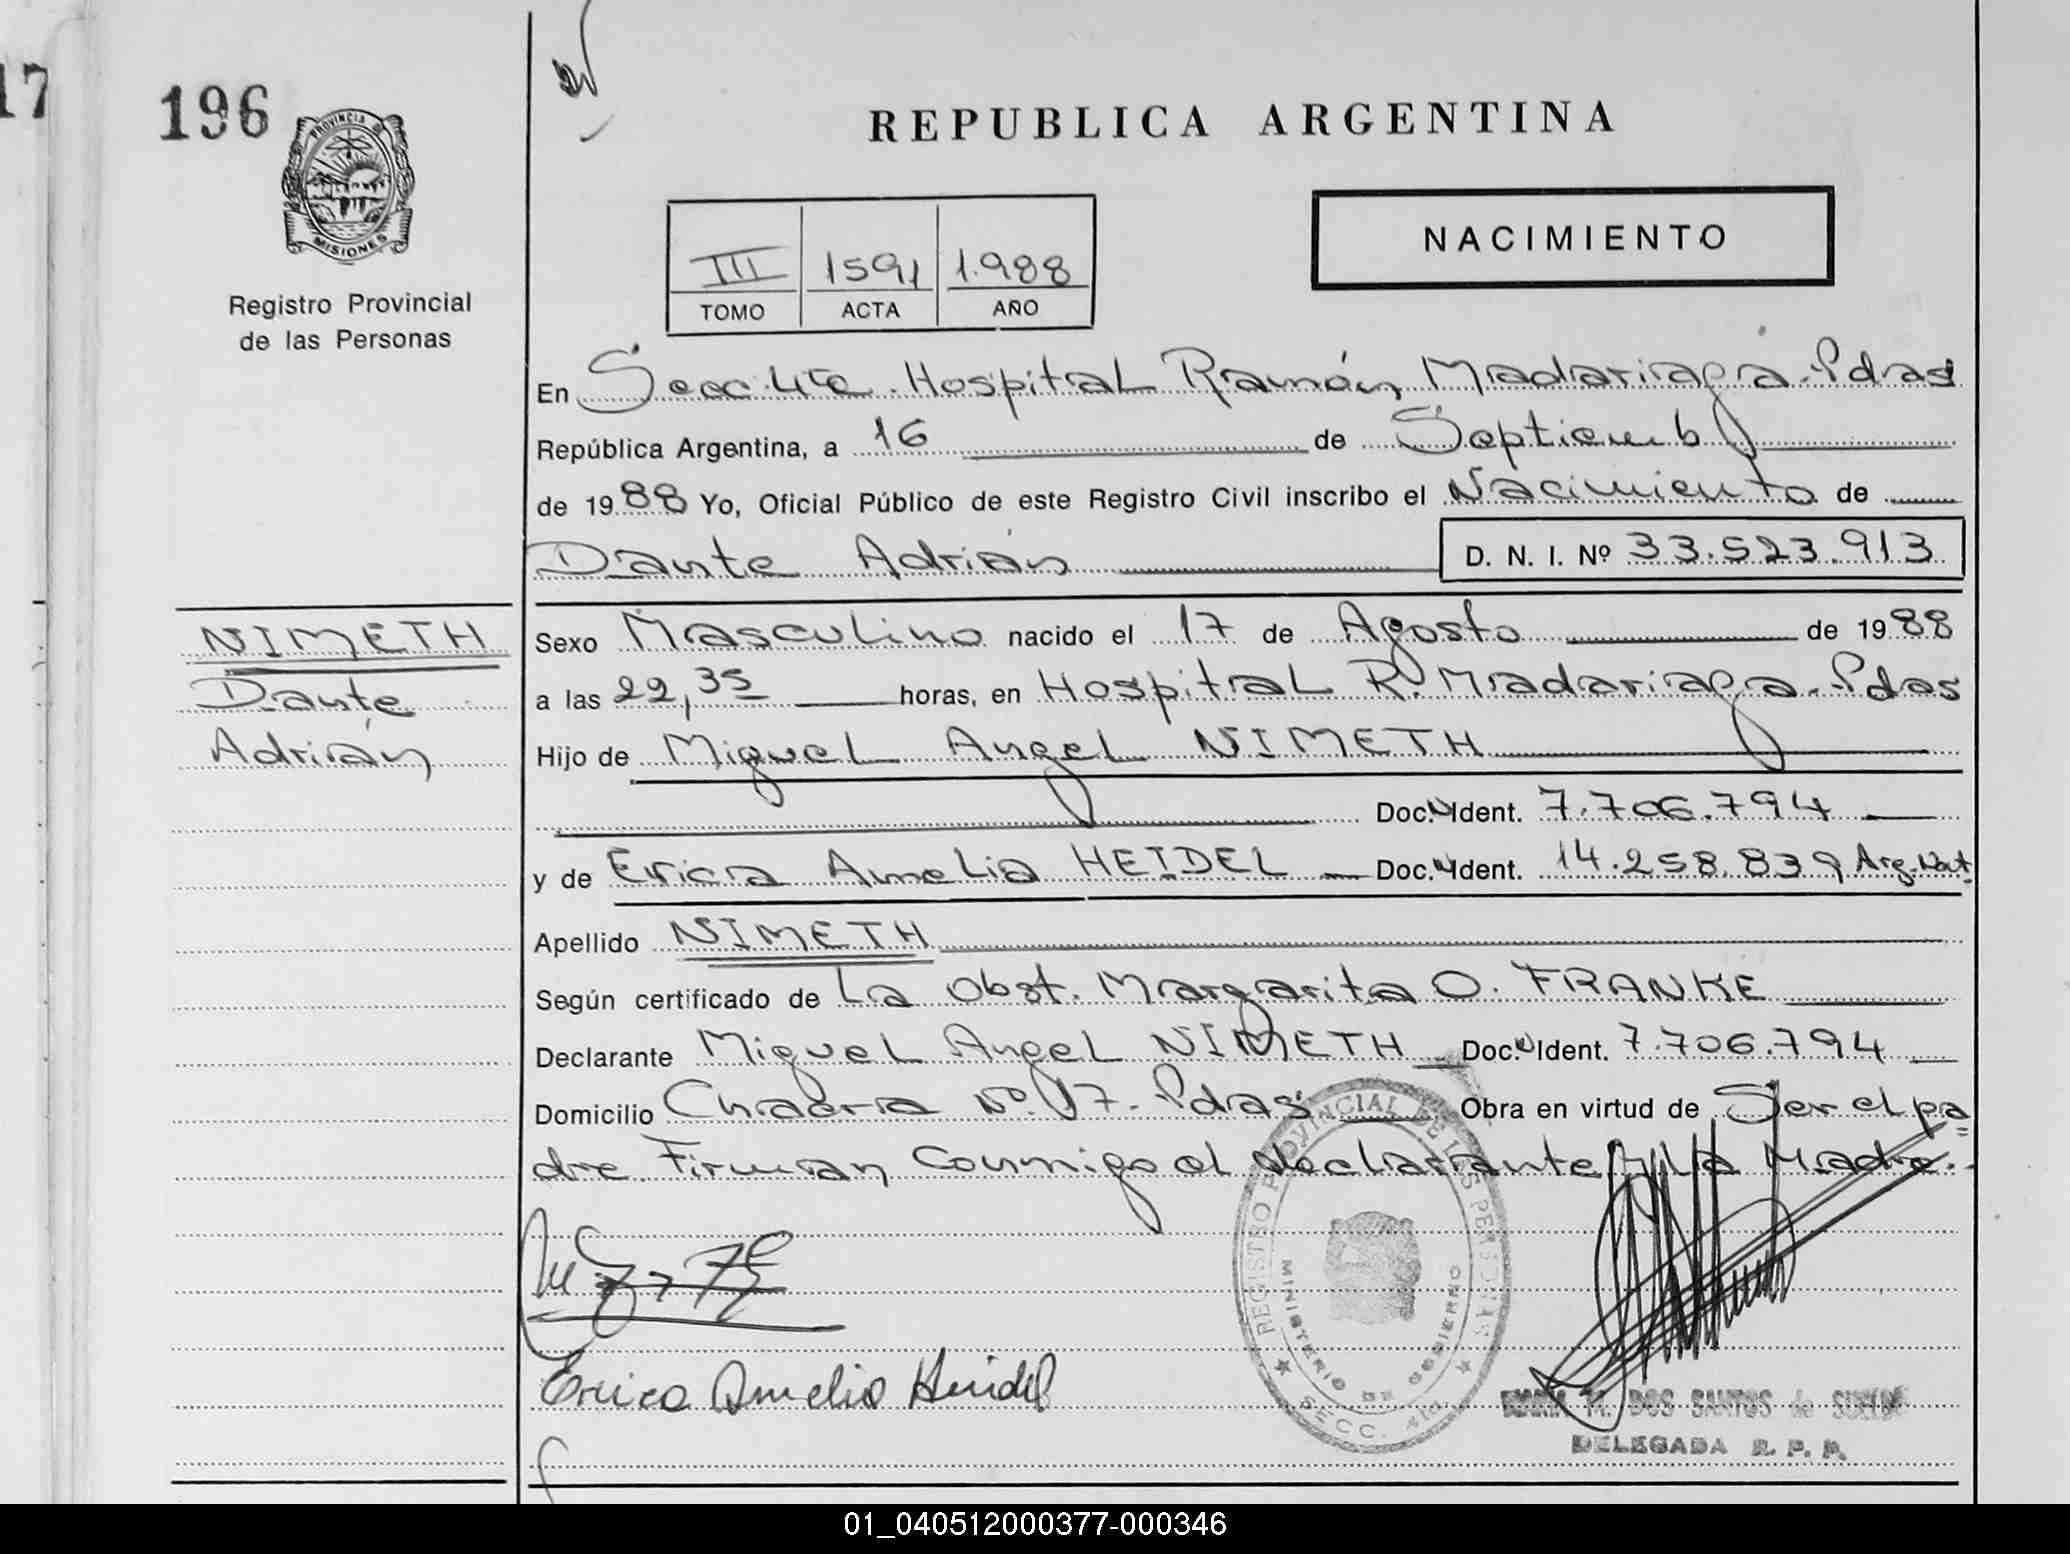 17
196
PROVINCIA DE
MISIONES
Registro Provincial
de las Personas
REPUBLICA ARGENTINA
NACIMIENTO
III 1591 1.988
TOMO ACTA AÑO
En Secc. 4ta. Hospital Ramón Madariaga. Pdas
República Argentina, a 16 de Septiembre
de 1988 Yo, Oficial Público de este Registro Civil inscribo el Nacimiento de
Dante Adrián D. N. I. Nº 33.523.913
NIMETH
Dante
Adrián
Sexo Masculino nacido el 17 de Agosto de 1988
a las 22,35 horas, en Hospital R. Madariaga. Pdas
Hijo de Miguel Angel NIMETH
Doc. Ident. 7.706.794
y de Erica Amelia HEIDEL Doc. Ident. 14.258.839 Arg. Nat.
Apellido NIMETH
Según certificado de La Obst. Margarita O. FRANKE
Declarante Miguel Angel NIMETH Doc. Ident. 7.706.794
Domicilio Chacra Nº 17. Pdas Obra en virtud de Ser el pa=
dre. Firman Conmigo el declarante y la Madre.
Erica Amelia Heidel
REGISTRO PROVINCIAL DE LAS PERSONAS
MINISTERIO DE GOBIERNO
SECC. 4ta
MARIA M. DOS SANTOS de
DELEGADA R. P. P.
01_040512000377-000346